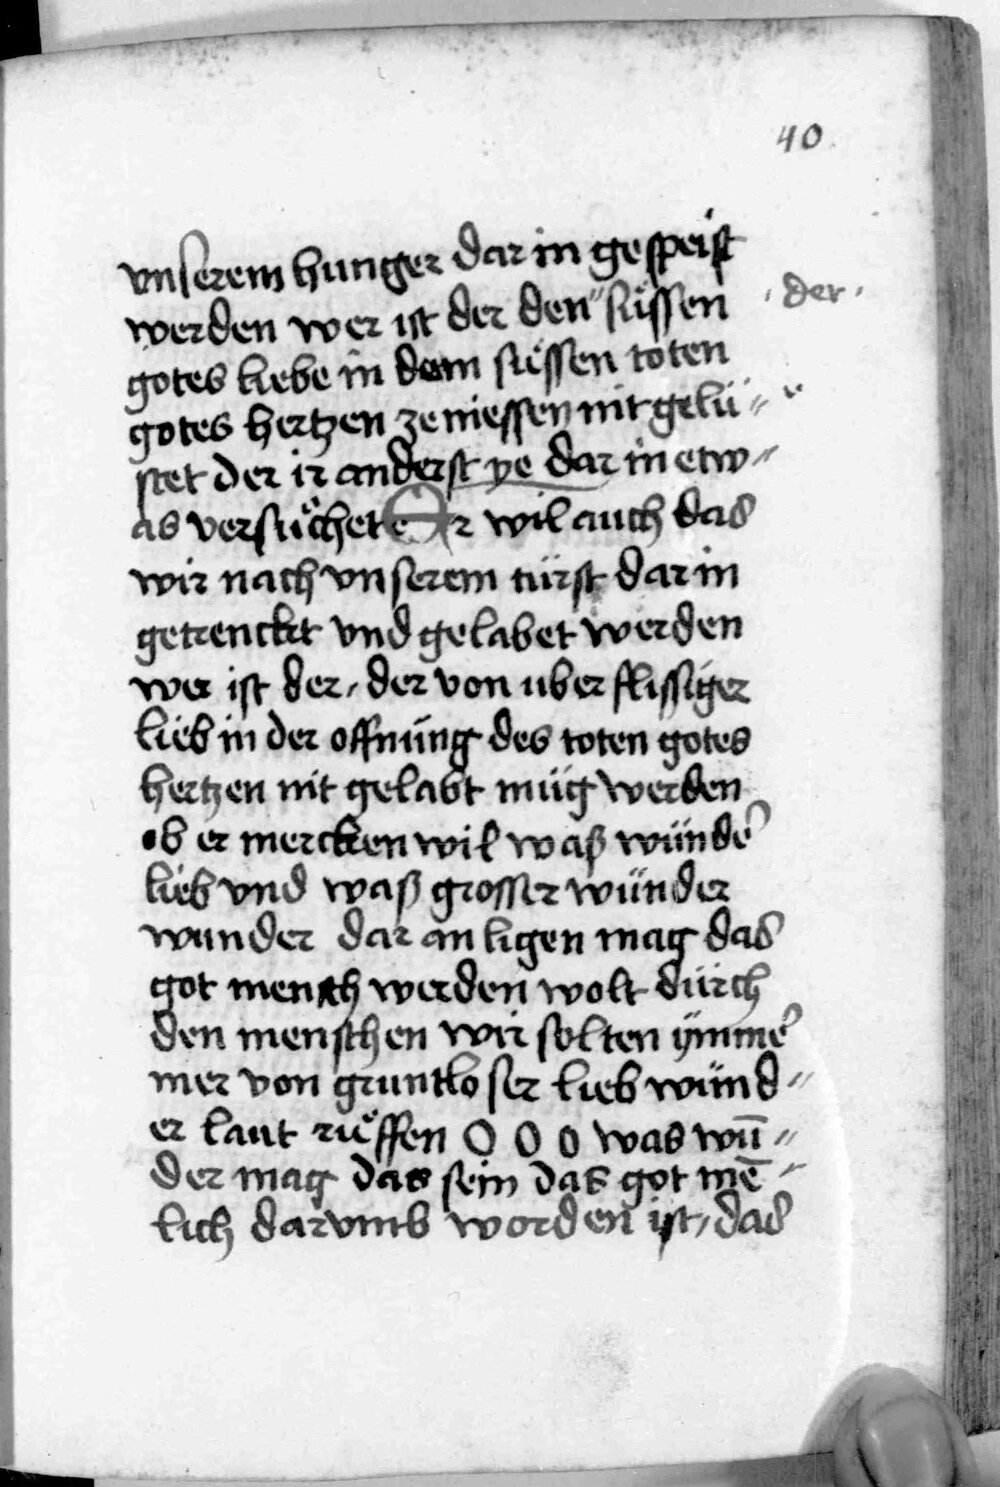 40
vnserem hunger dar in gespeist
werden wer ist der den " süssen · der ·
gotes liebe in dem suͤssen toten
gotes hertzen ze niessen nit gelü〃
stet der ir anderst ye dar in etw〃
as versuͤchet Er wil auch das
wir nach vnserem türst dar in
getrenckt vnd gelabet werden
wer ist der, der von uber flissiger
lieb in der offnüng des toten gotes
hertzen nit gelabt müg werden
ob er mercken wil waß wünde᷑
lieb vnd waß grosser wünder
wunder dar an ligen mag das
got mensch werden wolt dürch
den menschen wir solten ÿmme᷑
mer von gruntloser lieb wünd〃
er laut ruͤffen O O O was wu̅〃
der mag das sein das got me̅〃
lich darvmb worden ist, das